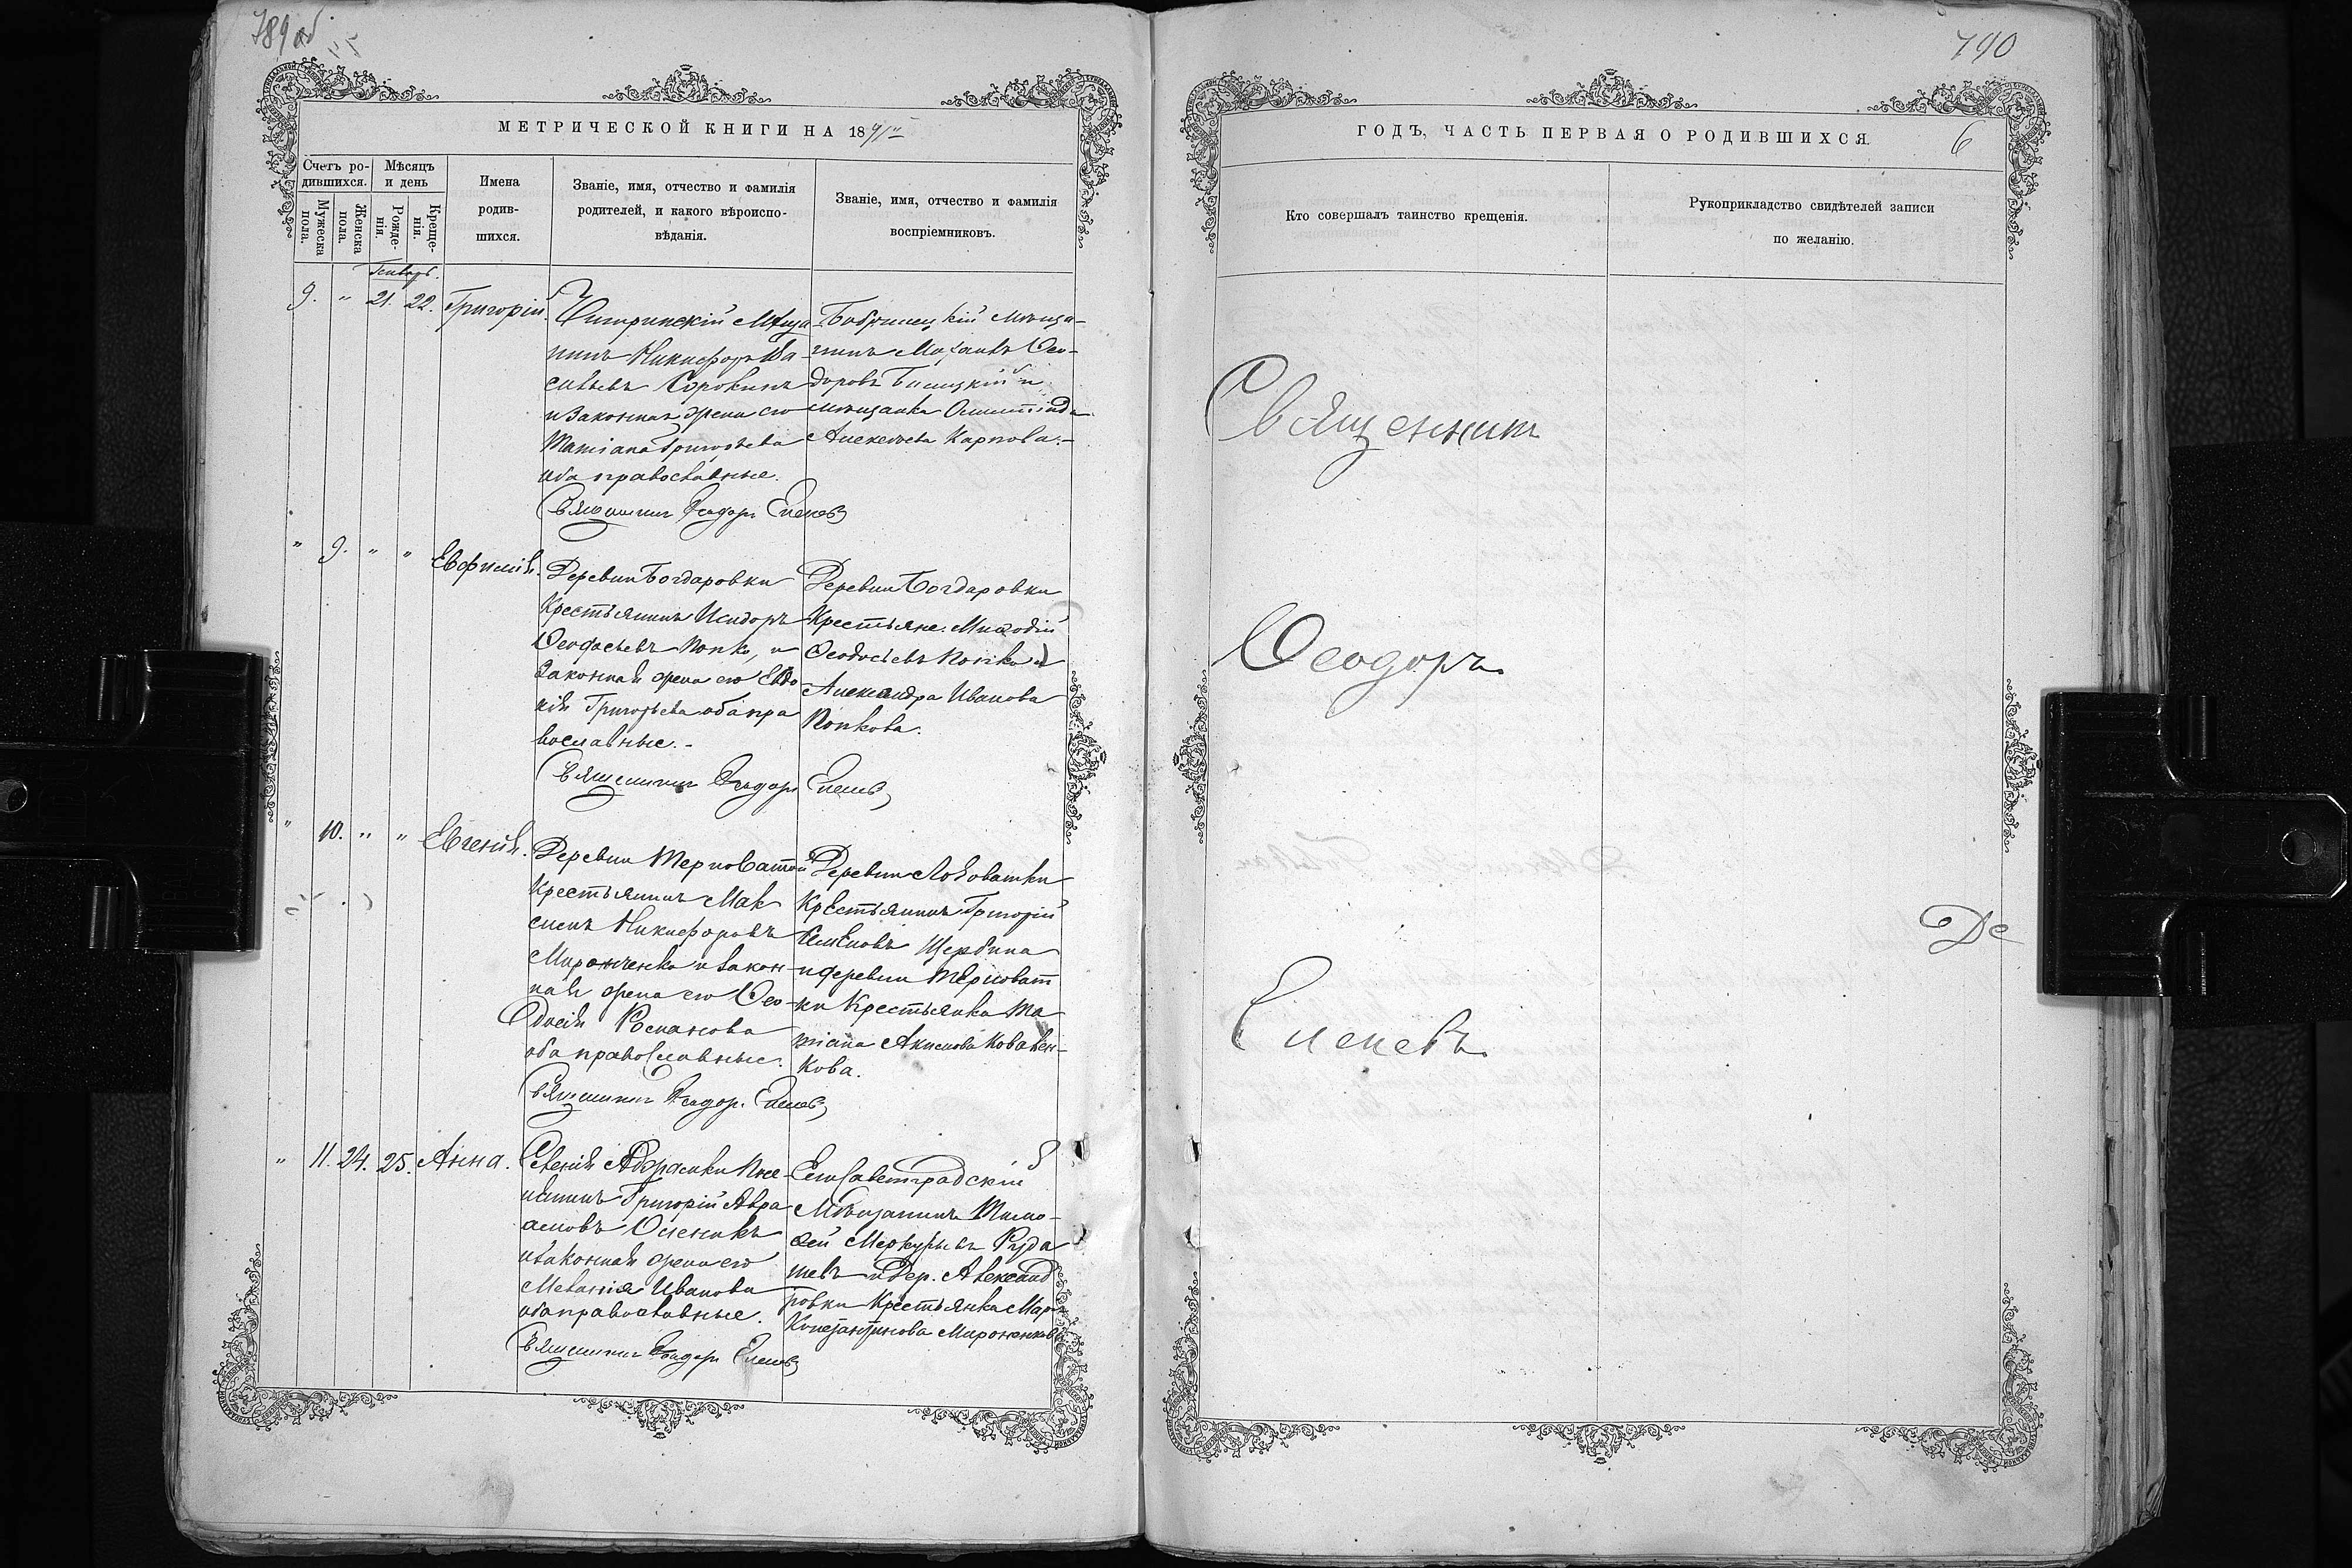 789 об
МЕТРИЧЕСКОЙ КНИГИ НА 18
Счетъ ро-
дившихся.
Мѣсяцъ
и день
Мужеска
пола.
Женска
пола.
Рожде-
нія.
Креще-
нія.
Имена
родив-
шихся.
Званіе, имя, отчество и фамилія
родителей, и какого вѣроиспо-
вѣданія.
Званіе, имя, отчество и фамилія
воспріемниковъ.
Генварь.
9. " 21. 22. Григорій.
Чигиринскій мѣща
нинъ Никифоръ Ва
сильевъ Сорокинъ
и законная жена его
Татіана Григорьева
оба православные.
Священникъ Ѳеодоръ Еленевъ
Бобринецкій мѣща-
нинъ Ѳео-
доровъ и
мѣщанка
Алексѣева Карпова.-
" 9. " " Евфимія.
Деревни Богдаровки
Крестьянинъ Исидоръ
Ѳеодосьевъ Попко, и
законная жена его Евдо
кія Григорьева оба пра
вославные.-
Священникъ Ѳеодоръ Еленевъ
Деревни Богдаровки
Крестьяне: Меѳодій
Ѳеодосьевъ Попко и
Александра Иванова
Попкова.
" 10. " " Евгенія.
Деревни Терноватой
Крестьянинъ Мак
симъ Никифоровъ
Миронченко и закон
ная жена его Ѳео-
досія Романова
оба православные.
Священникъ Ѳеодоръ Еленевъ
Деревни Лозоватки
Крестьянинъ Григорій
Семеновъ Щербина
и деревни Терноват
ки Крестьянка Та
тіана Акимова Ковален-
кова.
" 11. 24. 25. Анна.
Селенія Аджамки Посе
лянинъ Григорій Авра
амовъ Оленикъ
и законная жена его
Меланія Иванова
оба православные.
Священникъ Ѳеодоръ Еленевъ
Елисаветградскій
Мѣщанинъ Тимо-
ѳей Меркурьевъ Руда
шевъ и Дер. Александ
ровки Крестьянка Марѳа
Константинова Мироненкова
790
6
ГОДЪ, ЧАСТЬ ПЕРВАЯ О РОДИВШИХСЯ.
Кто совершалъ таинство крещенія.
Рукоприкладство свидѣтелей записи
по желанію.
Священникъ
Ѳеодоръ
Еленевъ
Де